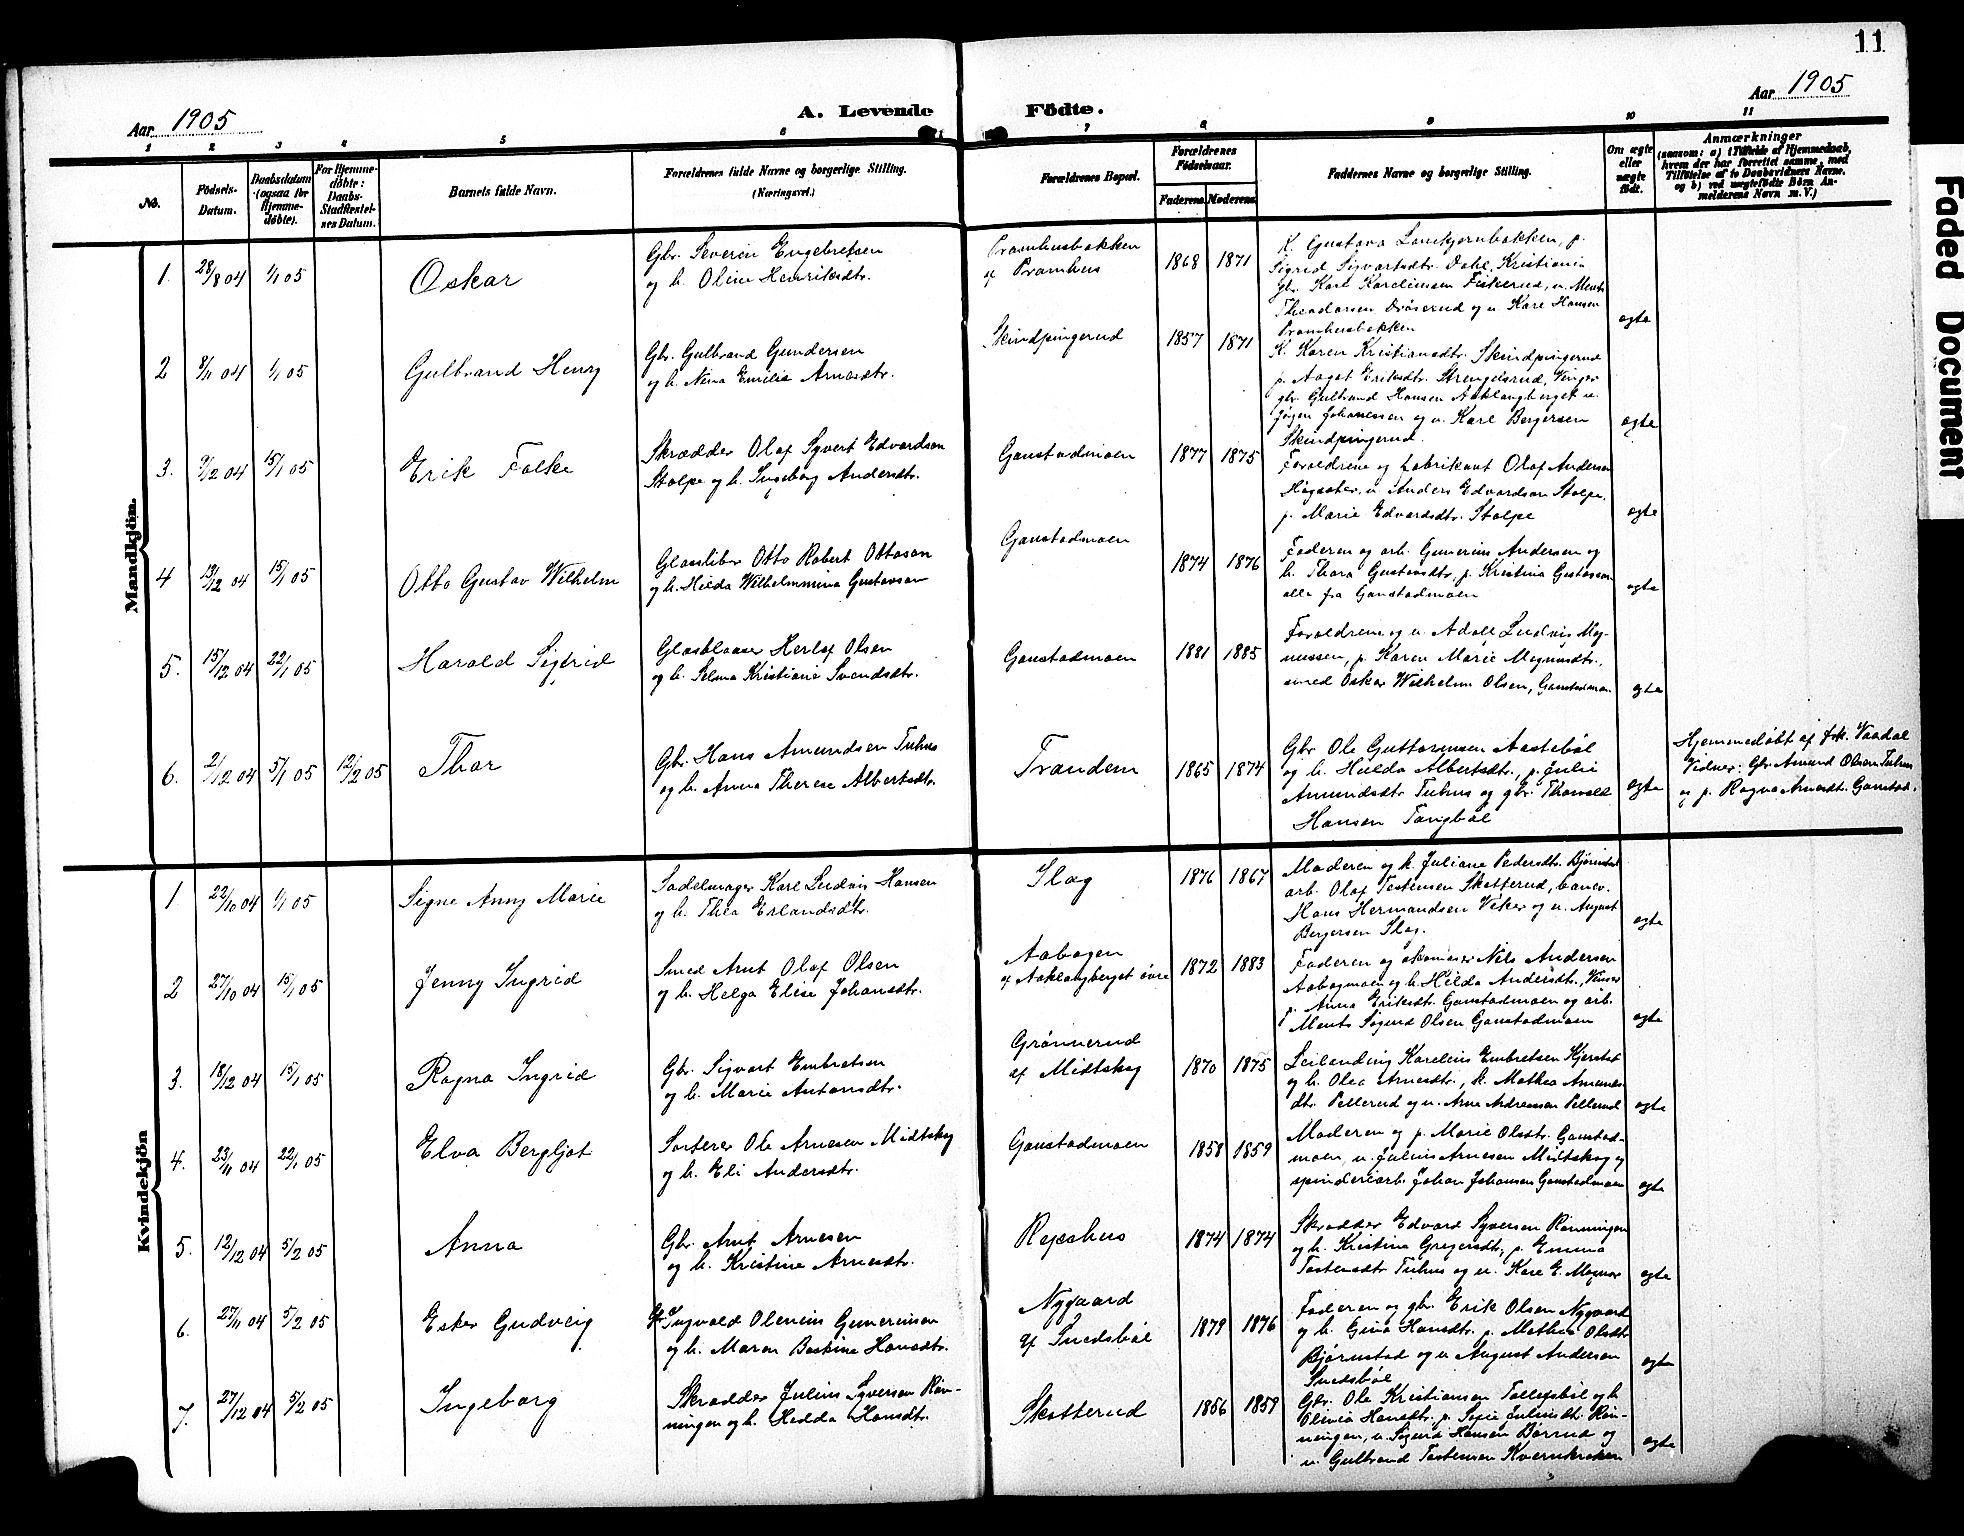 11
Aar 1905
A. Levende Födte.
Aar 1905
1 2 3 4 5 6 7 8 9 10 11
No.
Födsels-
Datum.
Daabsdatum
(ogsaa for
Hjemme-
döbte).
For Hjemme-
döbte:
Daabs-
Stadfæstel-
ses Datum.
Barnets fulde Navn.
Forældrenes fulde Navne og borgerlige Stilling.
(Næringsvei.)
Forældrenes Bopæl.
Forældrenes
Födselsaar.
Faderens Moderens
Faddernes Navne og borgerlige Stilling.
Om ægte
eller
uægte
födt.
Anmærkninger
(saasom: a) i Tilfælde af Hjemmedaab,
hvem der har forrettet samme, med
Tilföielse af to Daabsvidners Navne,
og b) ved uægtefödte Börn An-
melderens Navn m. V.)
Faded Document
Mandkjön.
1. 28/8 04 1/1 05 Oskar
Gbr. Severin Engebretsen
og h. Oline Henriksdtr.
Pramhusbakken
af Pramhus
1868 1871
K. Gustava Pramhusbakken, p.
Sigrid Sigvartsdtr. Dahl, Kristiania
gbr. Karl Karelinsen Fiskerud, u. Ments
Theodorsen og u. Kare Hansen
Pramhusbakken
ægte
2 8/11 04 1/1 05 Gulbrand Henry
Gbr. Gulbrand Gundersen
og h. Nina Emilie Arnesdtr.
Skindpingerud
1857 1871
K. Karen Kristiansdtr. Skindpingerud
p. Aagot Eriksdtr. Strengelsrud, Vinger
gbr. Gulbrand Hansen Aaklangberget u.
Jøgen Johannessen og u. Karl Bergersen
Skindpingerud.
ægte
3. 9/12 04 15/1 05 Erik Folke
Skrædder Olaf Syvert Edvardson
Stolpe og h. Ingeborg Andersdtr.
Gaustadmoen
1877 1875
Forældrene og fabrikant Olaf Andersen
u. Anders Edvardson Stolpe,
p. Marie Edvardsdtr. Stolpe
ægte
4 13/12 04 15/1 05 Otto Gustav Wilhelm
Glassliber Otto Robert Ottoson
og h. Hilda Wilhelmmina Gustavson
Gaustadmoen
1874 1876
Faderen og arb. Gunerius Andersen og
h. Thora Gustavsdtr, p. Kristina Gustavson
alle fra Gaustadmoen
ægte
5. 15/12 04 22/1 05 Harald Sigfrid
Glasblaaser Herlof Olsen
og h. Selma Kristiane Svendsdtr.
Gaustadmoen
1881 1885
Forældrene og u. Adolf Ludvig Mag-
nussen, p. Karen Marie Magnusdtr.,
smed Oskar Wilhelm Olsen, Gaustadmoen
ægte
6. 2/12 04 5/1 05 12/2 05 Thor
Gbr. Hans Amundsen Tuhus
og h. Anna Therese Albertsdtr.
Trandem
1865 1874
Gbr Ole Guttormsen Aastebøl
og h. Hulda Albertsdtr., p. Julie
Amundsdtr Tuhus og gbr. Thorvald
Hansen Tangbøl
ægte
Hjemmedøbt af frk. Vaadal
Vidner: Gbr. Amund Olsen Tuhus
og p. Ragna Arnesdtr. Gaustad.
Kvindekjön
1 22/10 04 1/1 05 Signe Anny Marie
Sadelmager Karl Ludvig Hansen
og h. Thea Erlandsdtr.
Slag
1876 1867
Moderen og k. Juliane Pedersdtr. Bjørnstad
arb. Olaf Tostensen Skotterud, banev.
Hans Hermandsen Viker og u. August
Bergersen Slag.
ægte
2 27/10 04 15/1 05 Jenny Ingrid
Smed Arnt Olaf Olsen
og h. Helga Elise Johansdtr.
Aabogen
af Aaklangberget övre
1872 1883
Faderen og skomager Nils Andersen
Aabogmoen og h. Hilda Andersdtr., Vinger
p. Anna Eriksdtr. Gaustadmoen og arb.
Ments Sigurd Olsen Gaustadmoen
ægte
3. 18/12 04 15/1 05 Ragna Ingrid
Gbr. Sigvart Embretsen
og h. Marie Antonsdtr.
Grönnerud
af Midtskog
1870 1875
Leilænding Karelius Embretsen Kjerstad
og h. Olea Arnesdtr., k. Mathea Amunds
dtr. Pellerud og u. Arne Andreassen Pellerud
ægte
4. 23/11 04 22/1 05 Elva Bergljot
Sorterer Ole Arnesen Midtskog
og h. Eli Andersdtr.
Gaustadmoen
1858 1859
Moderen og p. Marie Olsdtr. Gaustad-
moen, u. Julius Arnesen Midtskog og
spinderiarb. Johan Johansen Gaustadmoen
ægte
5. 12/12 04 5/2 05 Anna
Gbr. Arnt Arnesen
og h. Kristine Arnesdtr.
Rejshus
1874 1874
Skrædder Edvard Syversen Rønningen
og h. Kristine Gregersdtr, p. Emma
Tostensdtr Tuhus og u. Kare E. Magnor
ægte
6. 27/11 04 5/2 05 Ester Gudveig
Gbr Ingvald Olenius Guneriusen
og h. Maren Baskine Hansdtr.
Nygaard
af Sundsbøl
1879 1876
Faderen og gbr. Erik Olsen Nygaard
og h. Gina Hansdtr. p. Mathea Olsdtr
Bjørnstad og u. August Andersen
Sundsbøl
ægte
7. 27/12 04 5/2 05 Ingeborg
Skrædder Julius Syversen Røn-
ningen og h. Hedda Hansdtr.
Skotterud
1856 1859
Gbr. Ole Kristiansen Tollefsbøl og h.
Olivia Hansdtr. p. Sofie Juliusdtr. Røn-
ningen, u. Sigurd Hansen Børrud og
u. Gulbrand Tostensen Kvernkroken
ægte